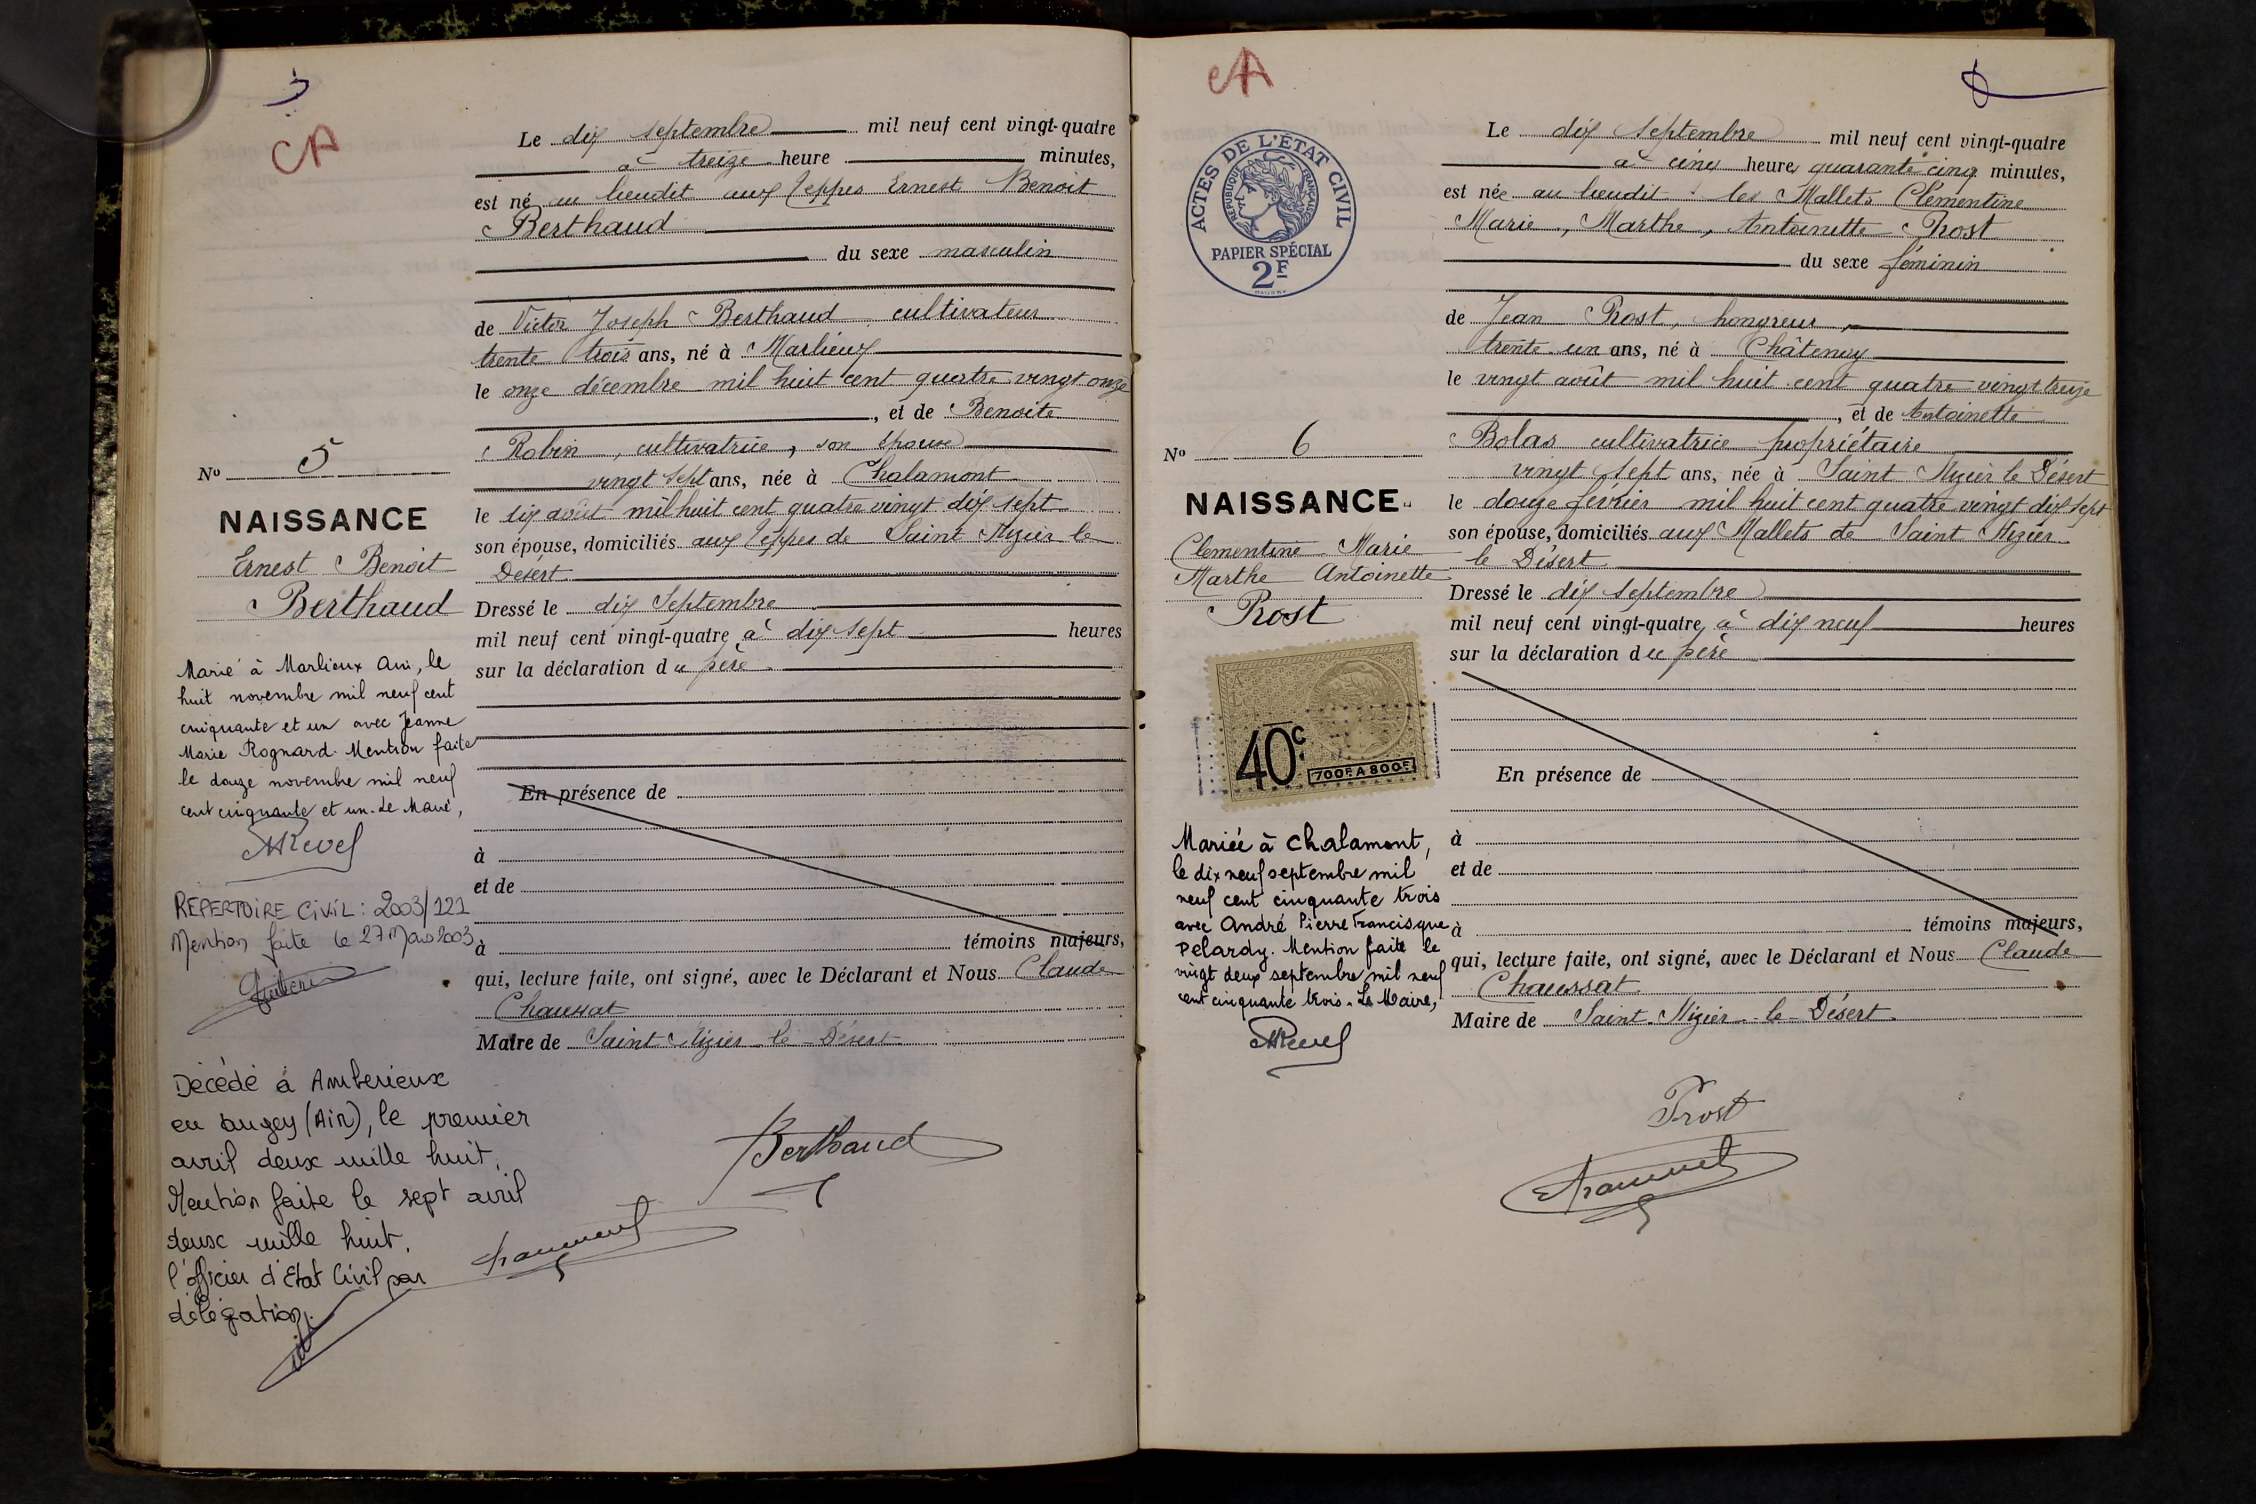 CA
Le dix septembre mil neuf cent vingt-quatre
à treize heure minutes,
est né au lieudit aux Teppes Ernest Benoit
Berthaud
du sexe masculin
de Victor Joseph Berthaud, cultivateur
trente trois ans, né à Marlieux
le onze décembre mil huit cent quatre vingt onze
, et de Benoite
Robin, cultivatrice, son épouse
vingt sept ans, née à Chalamont
le six août mil huit cent quatre vingt dix sept
son épouse, domiciliés aux Teppes de Saint Nizier le
Désert
Dressé le dix Septembre
mil neuf cent vingt-quatre à dix sept heures
sur la déclaration du père
En présence de
à
et de
à témoins majeurs,
qui, lecture faite, ont signé, avec le Déclarant et Nous Claude
Chaussat
Maire de Saint Nizier le Désert
Berthaud
No 5
NAISSANCE
Ernest Benoit
Berthaud
Marié à Marlieux Ain, le
huit novembre mil neuf cent
cinquante et un avec Jeanne
Marie Rognard. Mention faite
le douze novembre mil neuf
cent cinquante et un. Le Maire,
REPERTOIRE CIVIL : 2003/121
Mention faite le 27 Mars 2003
Décédé à Amberieux
en Bugey (AIN), le premier
avril deux mille huit.
Mention faite le sept avril
deux mille huit.
l'officier d'Etat Civil par
délégation.
CA
6
ACTES DE L'ÉTAT CIVIL
RÉPUBLIQUE FRANÇAISE
PAPIER SPÉCIAL
2F
Le dix septembre mil neuf cent vingt-quatre
à cinq heures quarante cinq minutes,
est née au lieudit les Mallets Clementine
Marie, Marthe, Antoinette Prost
du sexe féminin
de Jean Prost, hongreur,
trente un ans, né à Châtenay
le vingt août mil huit cent quatre vingt treize
, et de Antoinette
Bolas cultivatrice propriétaire
vingt sept ans, née à Saint Nizier le Désert
le douze février mil huit cent quatre vingt dix sept
son épouse, domiciliés aux Mallets de Saint Nizier
le Désert
Dressé le dix septembre
mil neuf cent vingt-quatre, à dix neuf heures
sur la déclaration du père
En présence de
à
et de
à témoins majeurs,
qui, lecture faite, ont signé, avec le Déclarant et Nous Claude
Chaussat
Maire de Saint-Nizier-le-Désert
Prost
No 6
NAISSANCE
Clementine Marie
Marthe Antoinette
Prost
40c
700F A 800F
Mariée à Chalamont,
le dix neuf septembre mil
neuf cent cinquante trois
avec André Pierre Francisque
Pelardy. Mention faite le
vingt deux septembre mil neuf
cent cinquante trois. Le Maire,